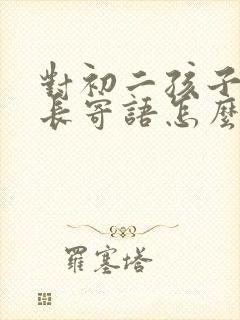 對初二孩子
長寄語怎麼
羅塞塔